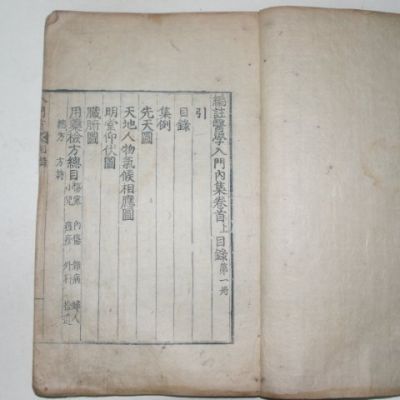 編註醫學入門內集卷首上目錄 第一册
引
目錄
集例
先天圖
天地人物氣候相應圖
明堂仰伏圖
臟腑圖
用藥檢方總目 傷寒 內傷 雜病 婦人
小兒 外科